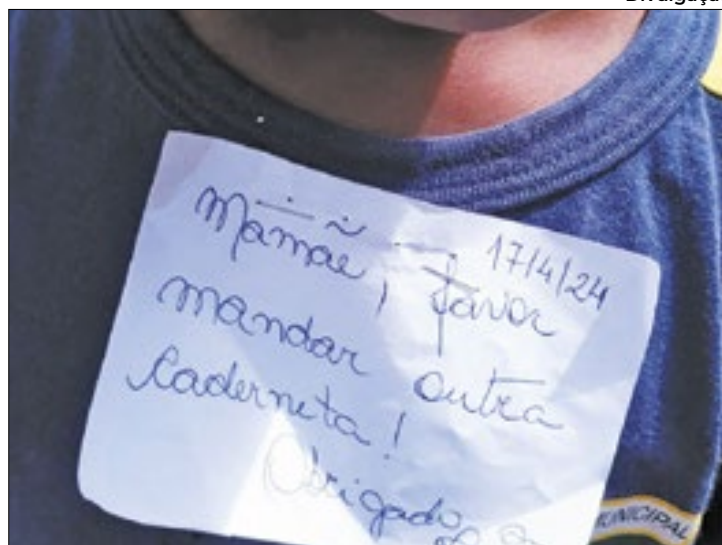 17/4/24
Mamãe, favor
mandar outra
Caderneta!
Obrigado
MUNICIPAL